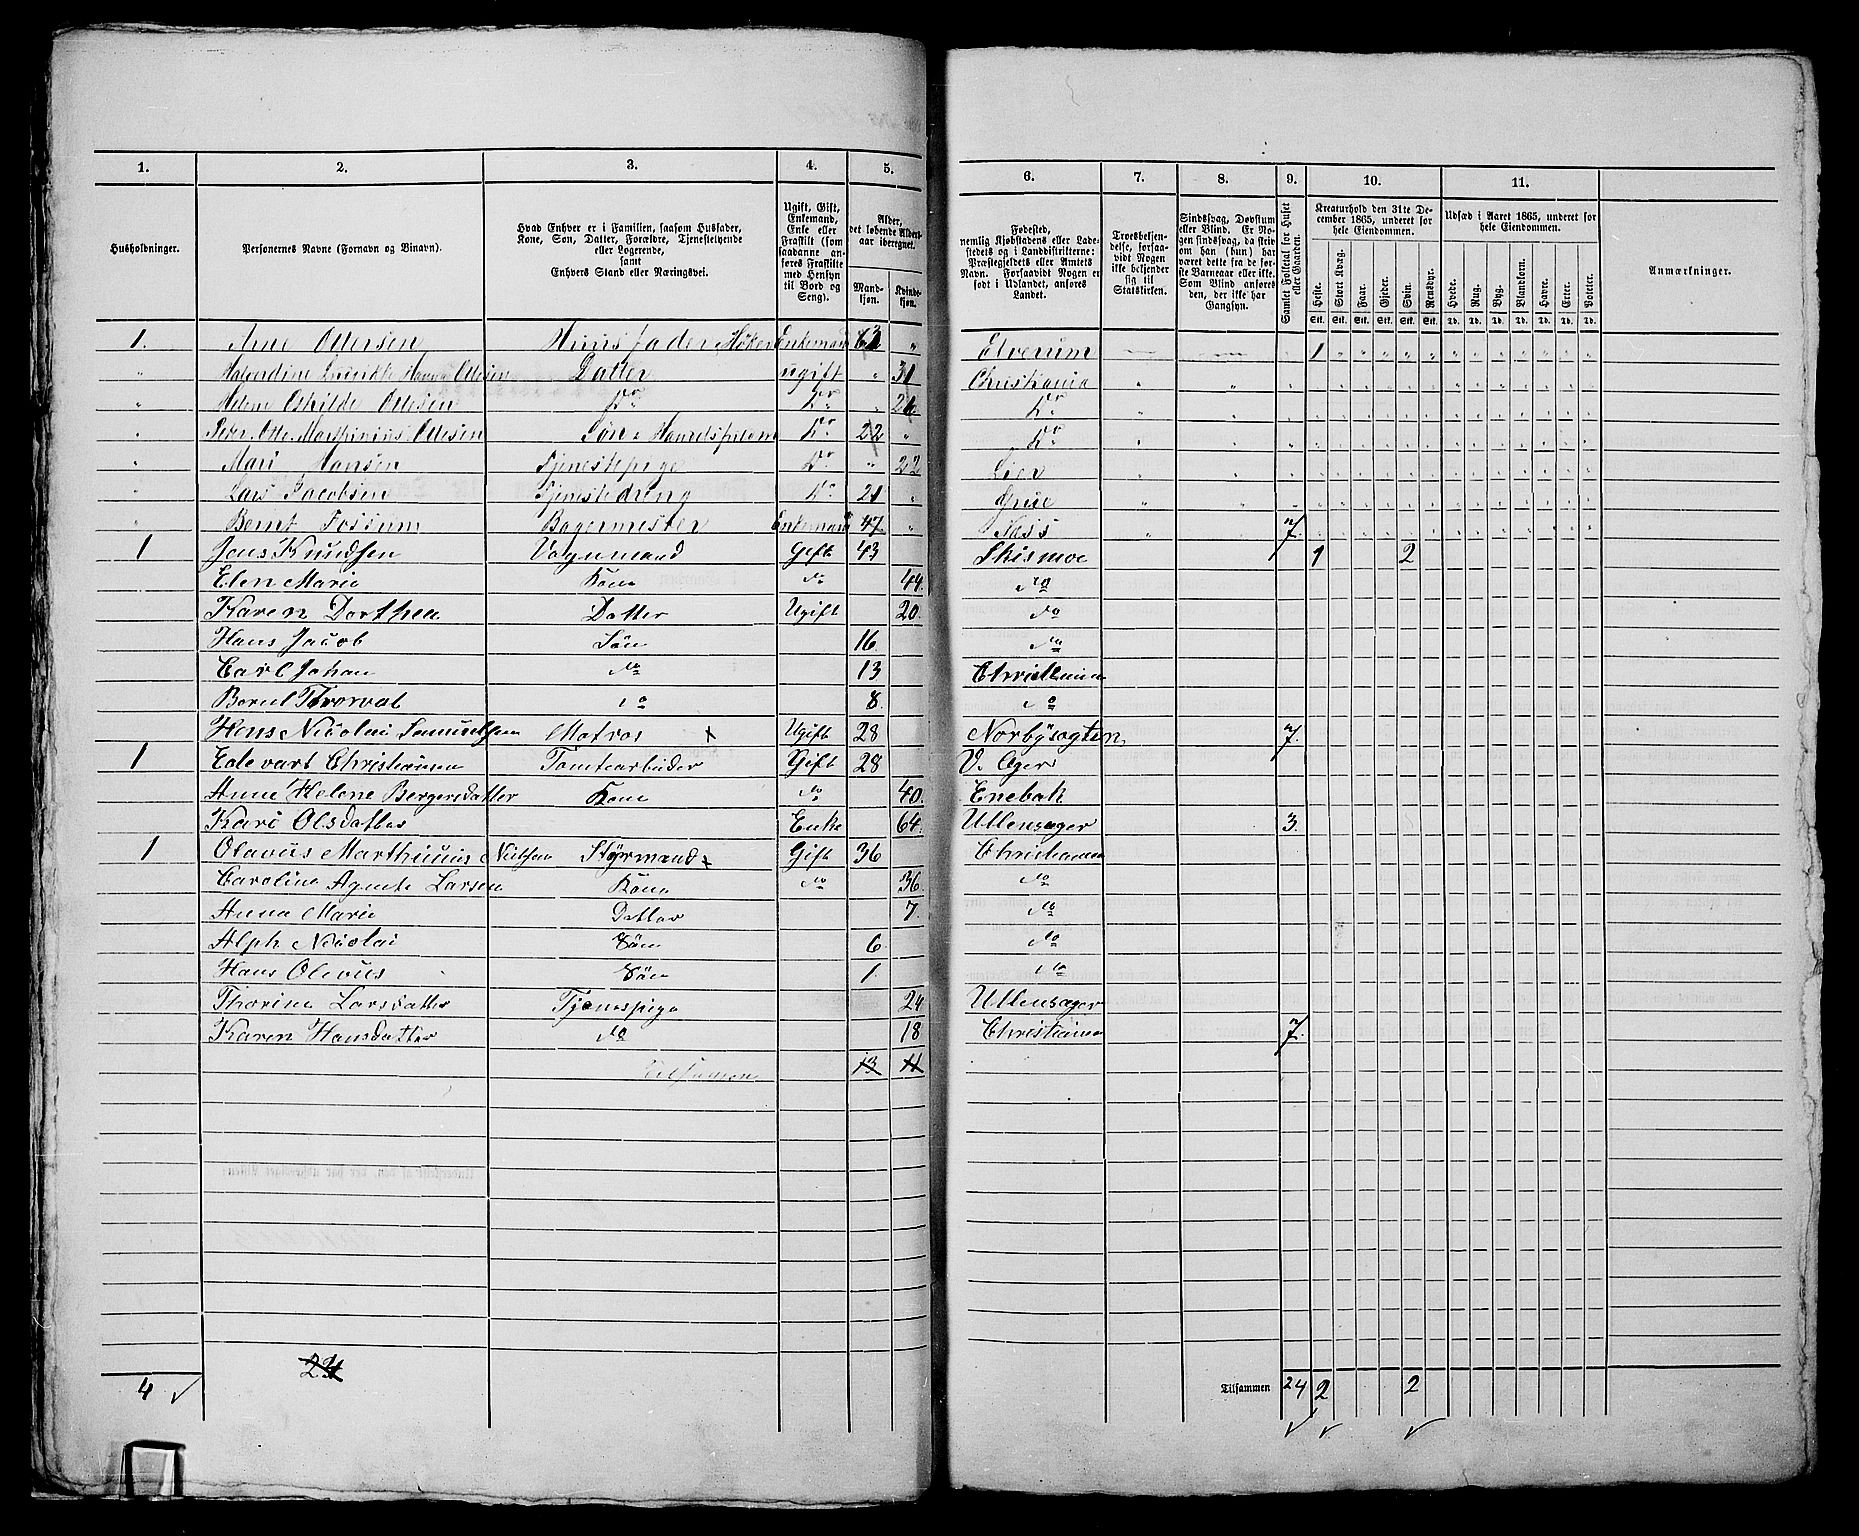 1. 2. 3. 4. 5. 6. 7. 8. 9. 10. 11.
Husholdninger. Personernes Navne (Fornavn og Binavn). Hvad Enhver er i Familien, saasom Husfader, Kone, Søn, Datter, Forældre, Tjenestetyende eller Logerende, samt Enhvers Stand eller Næringsvei. Ugift, Gift, Enkemand, Enke eller Fraskilt (som saadanne anføres Fraskilte med Hensyn til Bord og Seng). Alder, det løbende Aldersaar iberegnet. Mandkjøn. Kvindekjøn. Fødested, nemlig Kjøbstadens eller Ladestedets og i Landdistrikterne: Præstegjeldets eller Amtets Navn. Forsaavidt Nogen er født i Udlandet, anføres Landet. Troesbekjendelse, forsaavidt Nogen ikke bekjender sig til Statskirken. Sindssvag, Døvstum eller Blind. Er Nogen sindssvag, da skriv om han (hun) har været dette fra de første Barneaar eller ikke. Som Blind anføres den, der ikke har Gangsyn. Samlet Folketal for Huset eller Gaarden. Kreaturhold den 31te December 1865, underet for hele Eiendommen. Udsæd i Aaret 1865, underet for hele Eiendommen. Anmærkninger.
Heste. Stort Kvæg. Faar. Gjeder. Svin. Rensdyr. Hvede. Rug. Byg. Blandkorn. Havre. Erter. Poteter.
Stk. Stk. Stk. Stk. Stk. Stk. Td. Td. Td. Td. Td. Td. Td.
1. Arne Ottersen Huusfader, Høker Enkemand 63 " Elverum 1
" Halvardine Ottesen Datter ugift " 31 Christiania
" Helene Oskilde Ottesen Do Do " 26 Do
" Peder Otto Marthinius Ottesen Søn Do 22 " Do
" Mari Hansen Tjenestepige Do " 22 Lier
" Lars Jacobsen Tjenestedreng Do 21 " Grue
" Bernt Fossum Bagermester Enkemand 47 " Næss 7.
1 Jens Knudsen Vognmand Gift 43 Skismoe 1 2
Elen Marie Kone do 44. do
Karen Dorthea Datter Ugift 20. do
Hans Jacob Søn 16. do
Carl Johan do 13 Christiania
Bernt Thorval do 8. do
Hans Nicolai Samuelsen Matros x Ugift 28 7.
1 Edevart Christiansen Tomtearbeider Gift 28 V. Ager
Anne Helene Bergersdatter Kone do 40. Enebak
Kari Olsdatter Enke 64. Ullensager 3.
1 Olavus Marthinius Nielsen Styrmand x Gift 36 Christiania
Caroline Agnete Larsen Kone do 36. do
Anna Marie Datter 7. do
Alph Nicolai Søn 6. do
Hans Olavus Søn 1 do
Thorine Larsdatter Tjenespige 24 Ullensager
Karen Hansdatter do 18 Christiania 7.
Tilsammen 13 11
24
4 ✓ Tilsammen 24 2 2
✓ ✓ ✓